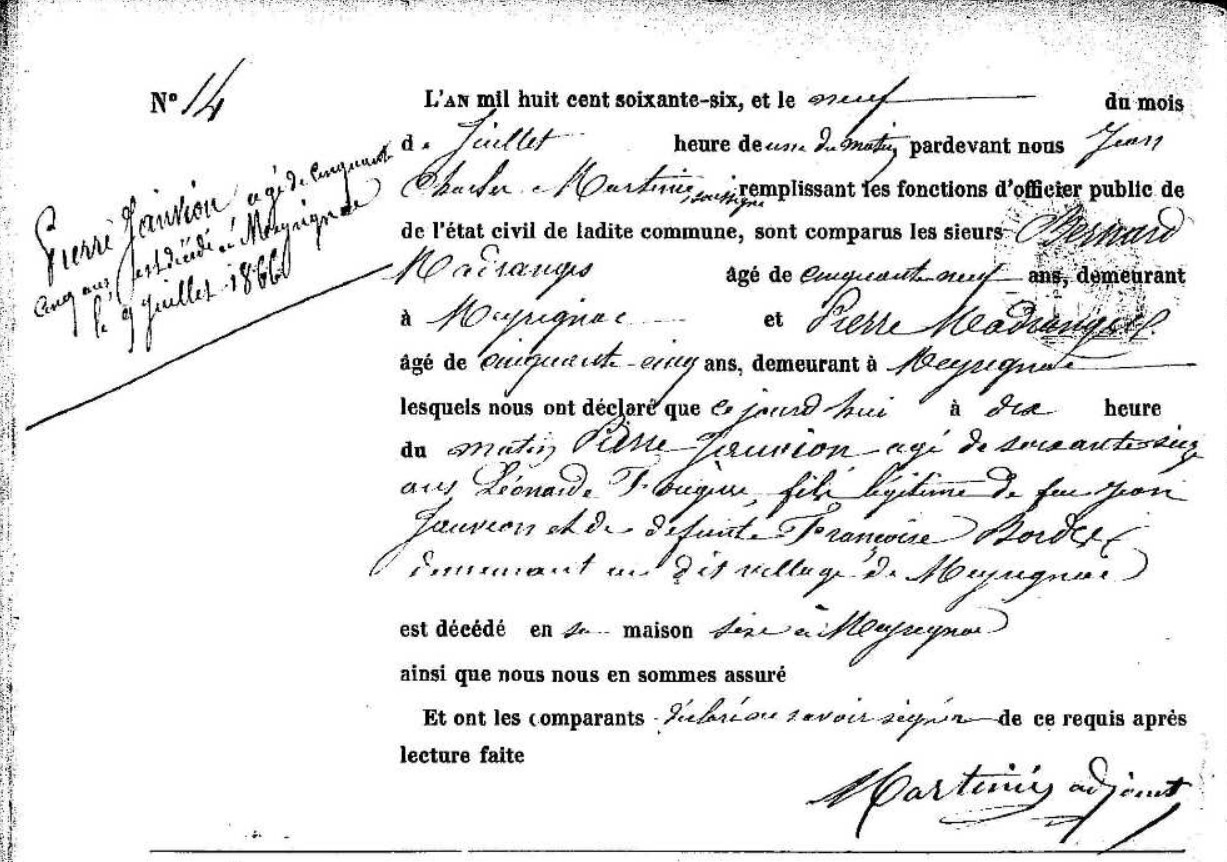 N° 14
Pierre Jauvion agé de cinquante
cinq ans, est décédé à Meyrignac
le 9 juillet 1866
L'AN mil huit cent soixante-six, et le neuf du mois
de Juillet heure de une du matin pardevant nous Jean
Charles Martinie, soussigné remplissant les fonctions d'officier public de
de l'état civil de ladite commune, sont comparus les sieurs Bernard
Madranges âgé de cinquante neuf ans, demeurant
à Meyrignac et Pierre Madranges
âgé de cinquante-cinq ans, demeurant à Meyrignac
lesquels nous ont déclaré que ce jourd'hui à dix heure
du matin Pierre Jauvion agé de soixante
ans Léonarde Fougère, fils légitime de feu Jean
Jauvion et de défunte Françoise
demeurant au dit village de Meyrignac
est décédé en sa maison sise à Meyrignac
ainsi que nous nous en sommes assuré
Et ont les comparants déclaré ne savoir signer de ce requis après
lecture faite
Martinie adjoint